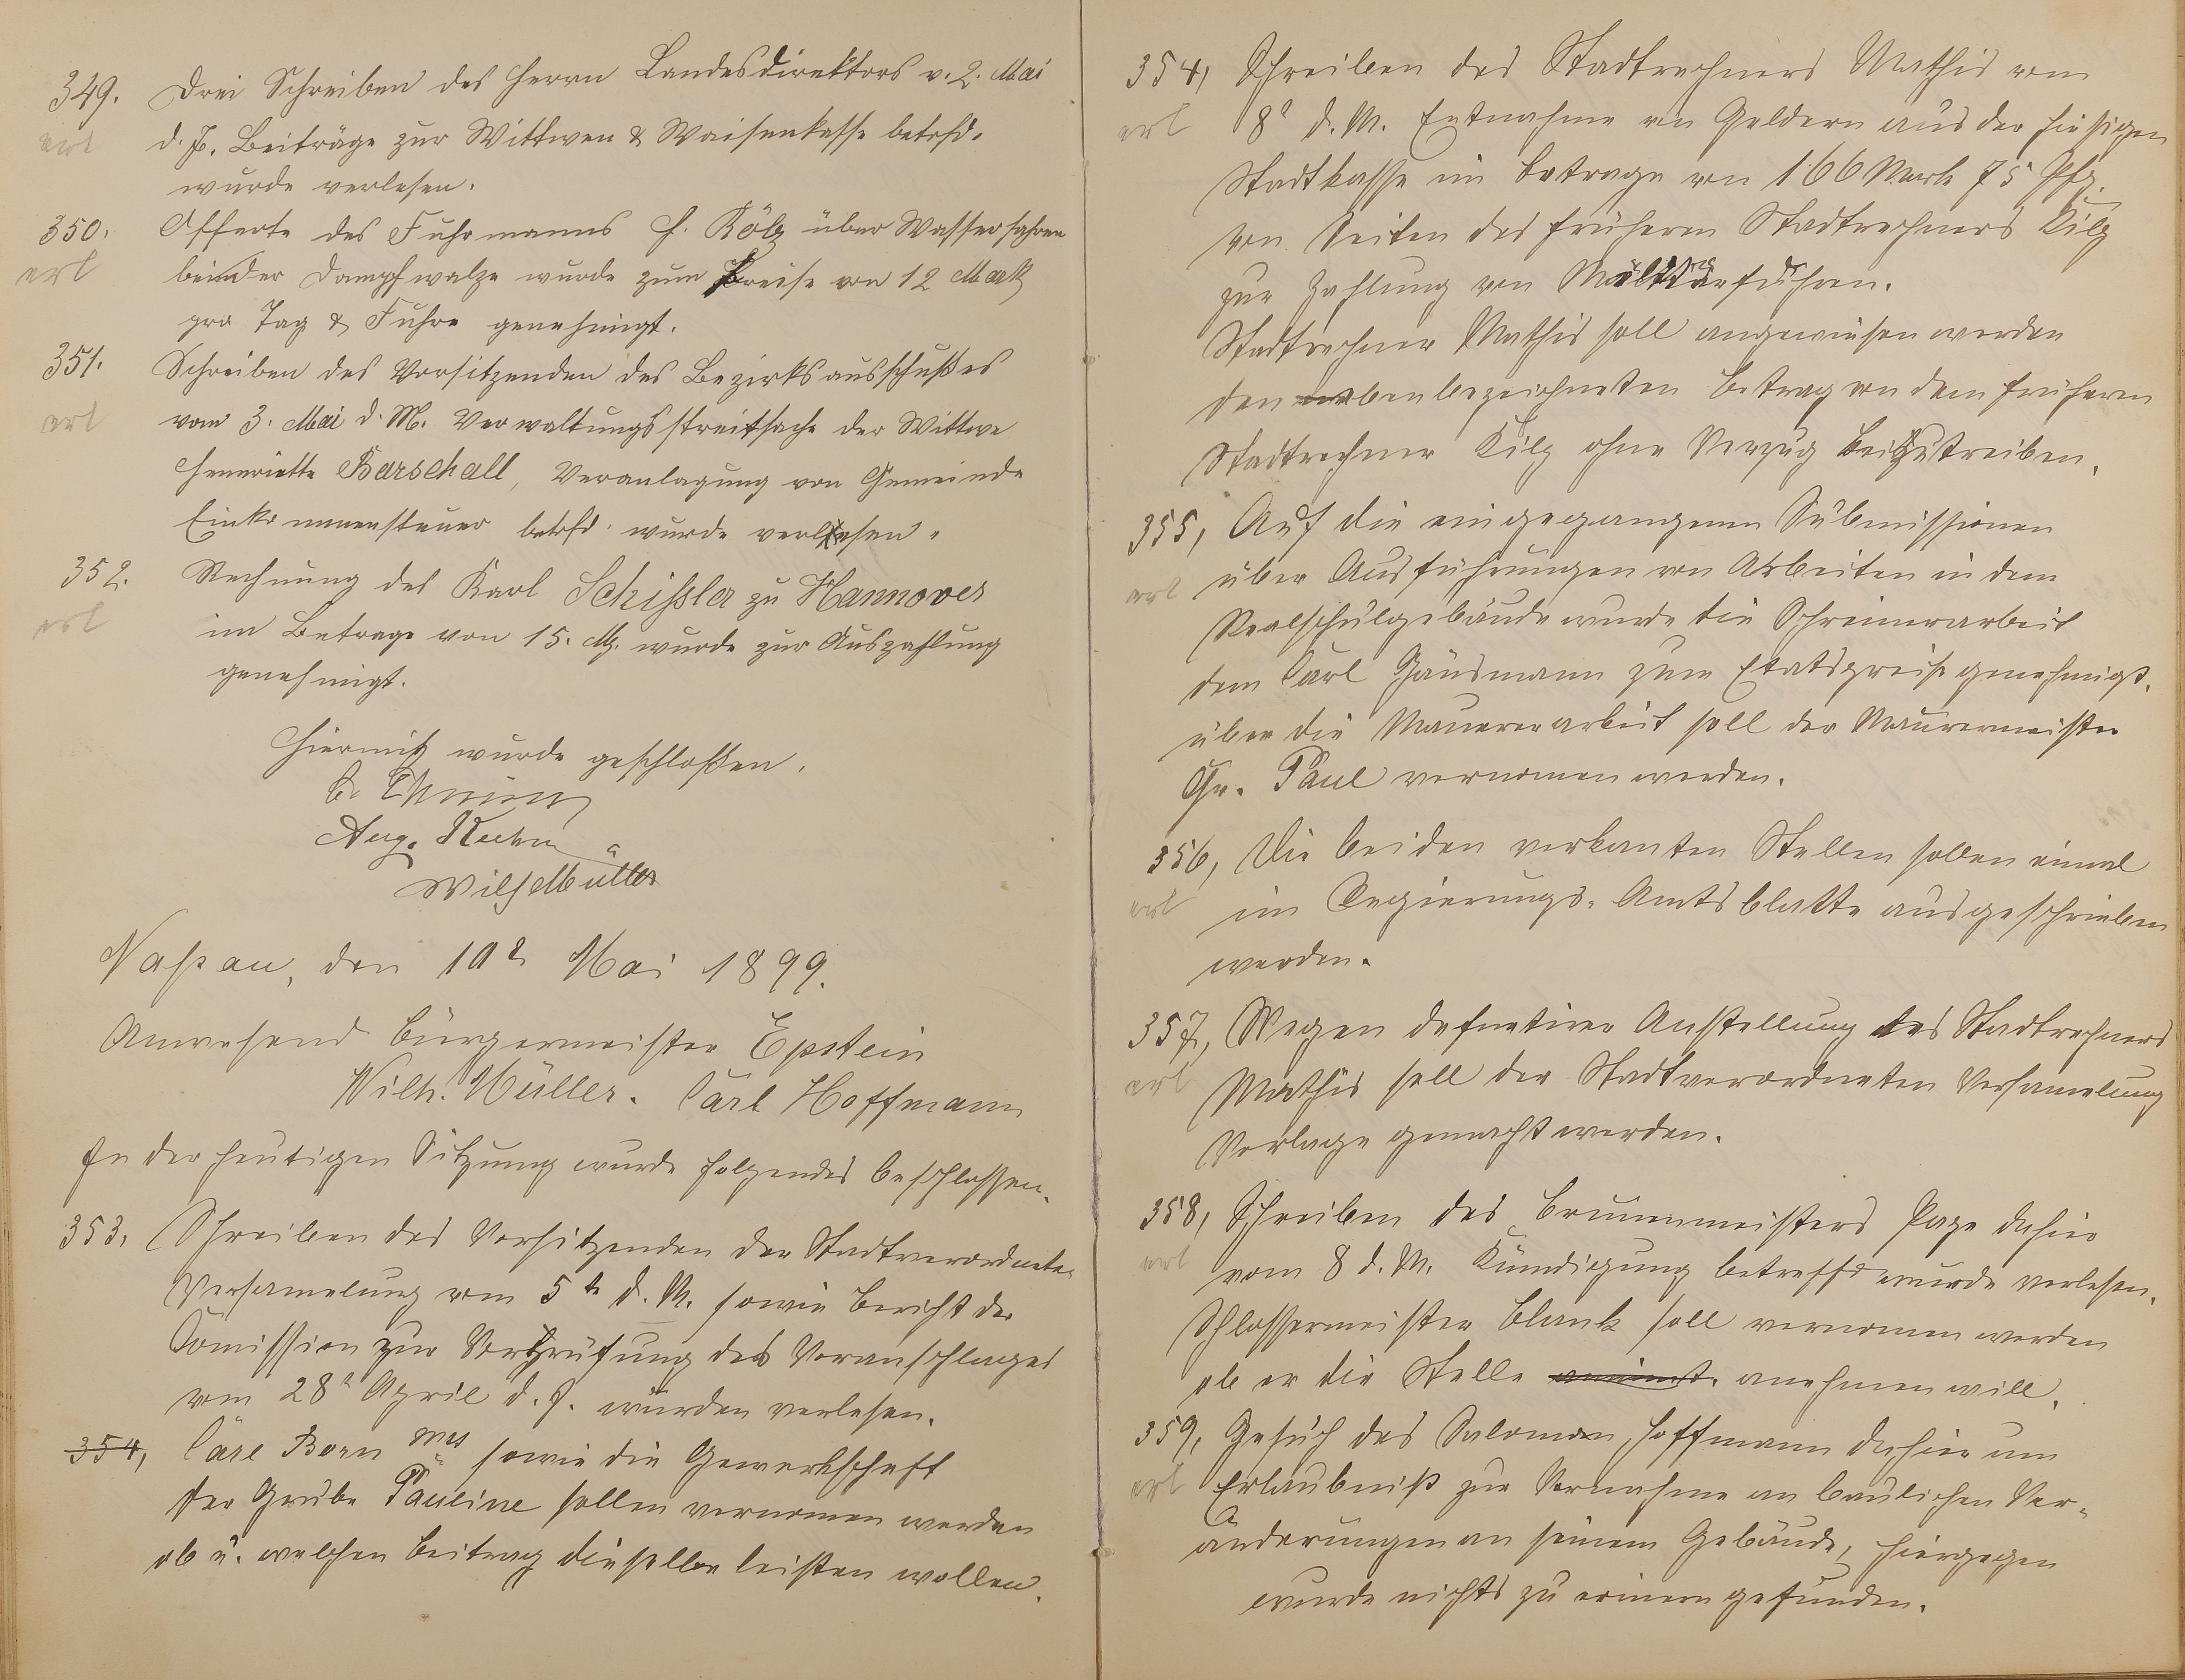 349. Drei Schreiben des Herrn Landesdirektors v. 2. Mai
erl d. J. Beiträge zur Wittwen & Waisenkasse betrfd.
wurde verlesen.
350. Offerte des Fuhrmanns H. Kölz über Wasserfahren
erl bei der Dampfwalze wurde zum Preise von 12 Mark
pro Tag & Fuhre genehmigt.
351. Schreiben des Vorsitzenden des Bezirksausschußes
erl vom 3. Mai d. M. Verwaltungsstreitsache der Wittwe
Henriette Barschall, Veranlagung von Gemeinde
Einkommensteuer betrfd. wurde verlesen.
352. Rechnung des Karl Schißler zu Hannover
erl im Betrage von 15. M. wurde zur Auszahlung
genehmigt.
Hiermit wurde geschloßen.
Aug. Kuhn
Wilh Müller
Naßau, den 10t Mai 1899.
Anwesend Bürgermeister Epstein
Wilh. Müller. Carl Hoffmann
In der heutigen Sitzung wurde folgendes beschlossen.
353. Schreiben des Vorsitzenden der Stadtverordneten
Versamelung vom 5t d. M. sowie Bericht der
Comission zur Vorprüfung des Voranschlages
vom 28t April d. J. wurden verlesen.
354, Carl Born sowie die Gewerkschaft
der Grube Pauline sollen vernomen werden
ob u. welchen Beitrag dieselbe leisten wollen.
354, Schreiben des Stadtrechners Mathis vom
erl 8t d. M. Entnahme von Geldern aus der hiesigen
Stadtkasse im Betrage von 166 Mark 75 Pfg.
von Seiten des früheren Stadtrechners Kilz
zur Zahlung von Militärfuhren.
Stadtrechner Mathis soll angewiesen werden
den obenbezeichneten Betrag von dem früheren
Stadtrechner Kilz ohne Verzug beizutreiben.
355, Auf die eingegangenen Submissionen
erl über Ausführungen von Arbeiten in dem
Realschulgebäude wurde die Schreinerarbeit
dem Carl Gäusmann zum Etatspreise genehmigt,
über die Maurerarbeit soll der Maurermeister
Chr. Paul vernomen werden.
356, Die beiden verkanten Stellen sollen einmal
erl im Regierungs-Amtsblatte ausgeschrieben
werden.
357, Wegen defnetiver Anstellung des Stadtrechners
erl Mathis soll der Stadtverordneten Versamelung
Vorlage gemacht werden.
358, Schreiben des Brunnenmeisters Page dahier
erl vom 8 d. M. Kündigung betreffd wurde verlesen,
Schlossermeister Blank soll vernomen werden
ob er die Stelle anehmen will.
359, Gesuch des Salomon Hoffmann dahier um
erl Erlaubniß zur Vornahme an baulichen Ver-
änderungen an seinem Gebäude, hiergegen
wurde nichts zu erinern gefunden.